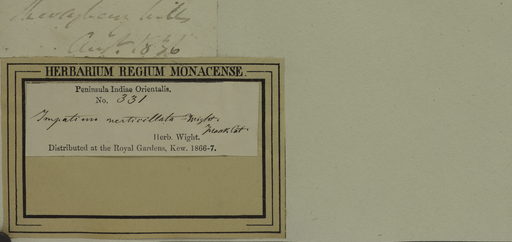 hills
Augt. 1836
HERBARIUM REGIUM MONACENSE.
Peninsula Indiae Orientalis.
No. 331
Impatiens verticillata Wight.
Herb. Wight.
Distributed at the Royal Gardens, Kew. 1866-7.